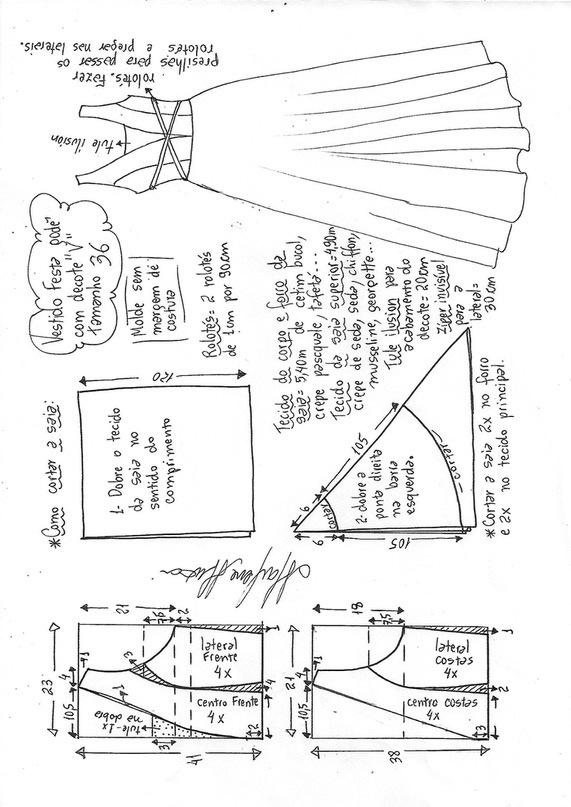 presilhas para passar os
rolotês e pregar nas laterais.
rolotês. Fazer
tule ilusión
Vestido Festa godê
com decote "V"
Tamanho 36
Molde sem
margem de
costura
Rolotês = 2 rolotês
de 1cm por 90cm
Tecido do corpo e forro da
saia = 5,40m de cetim bucol,
crepe pasquale, tafetá...
Tecido da saia superior = 4,90m
crepe de seda, seda, chiffon,
musseline, georgette...
Tule ilusion para
acabamento do
decote = 20cm
Zíper invisível
para a
lateral =
30cm
*Como cortar a saia:
120
1- Dobre o tecido
da saia no
sentido do
comprimento
105
9
9
cortar
2- dobre a
ponta direita
na barra
esquerda.
cortar
105
*Cortar a saia 2x no forro
e 2x no tecido principal.
21
7,5
2
23
4
1
10,5
3
1
lateral
Frente
4x
1
centro Frente
4x
4
tule - 1x
na dobra
3
2
41
18
7,5
21
4
1
10,5
lateral
costas
4x
1
centro costas
4x
2
3
38